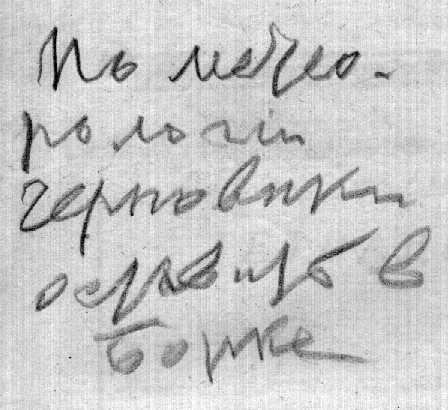 По метео-
рологии
черновики
оставить в
Борке